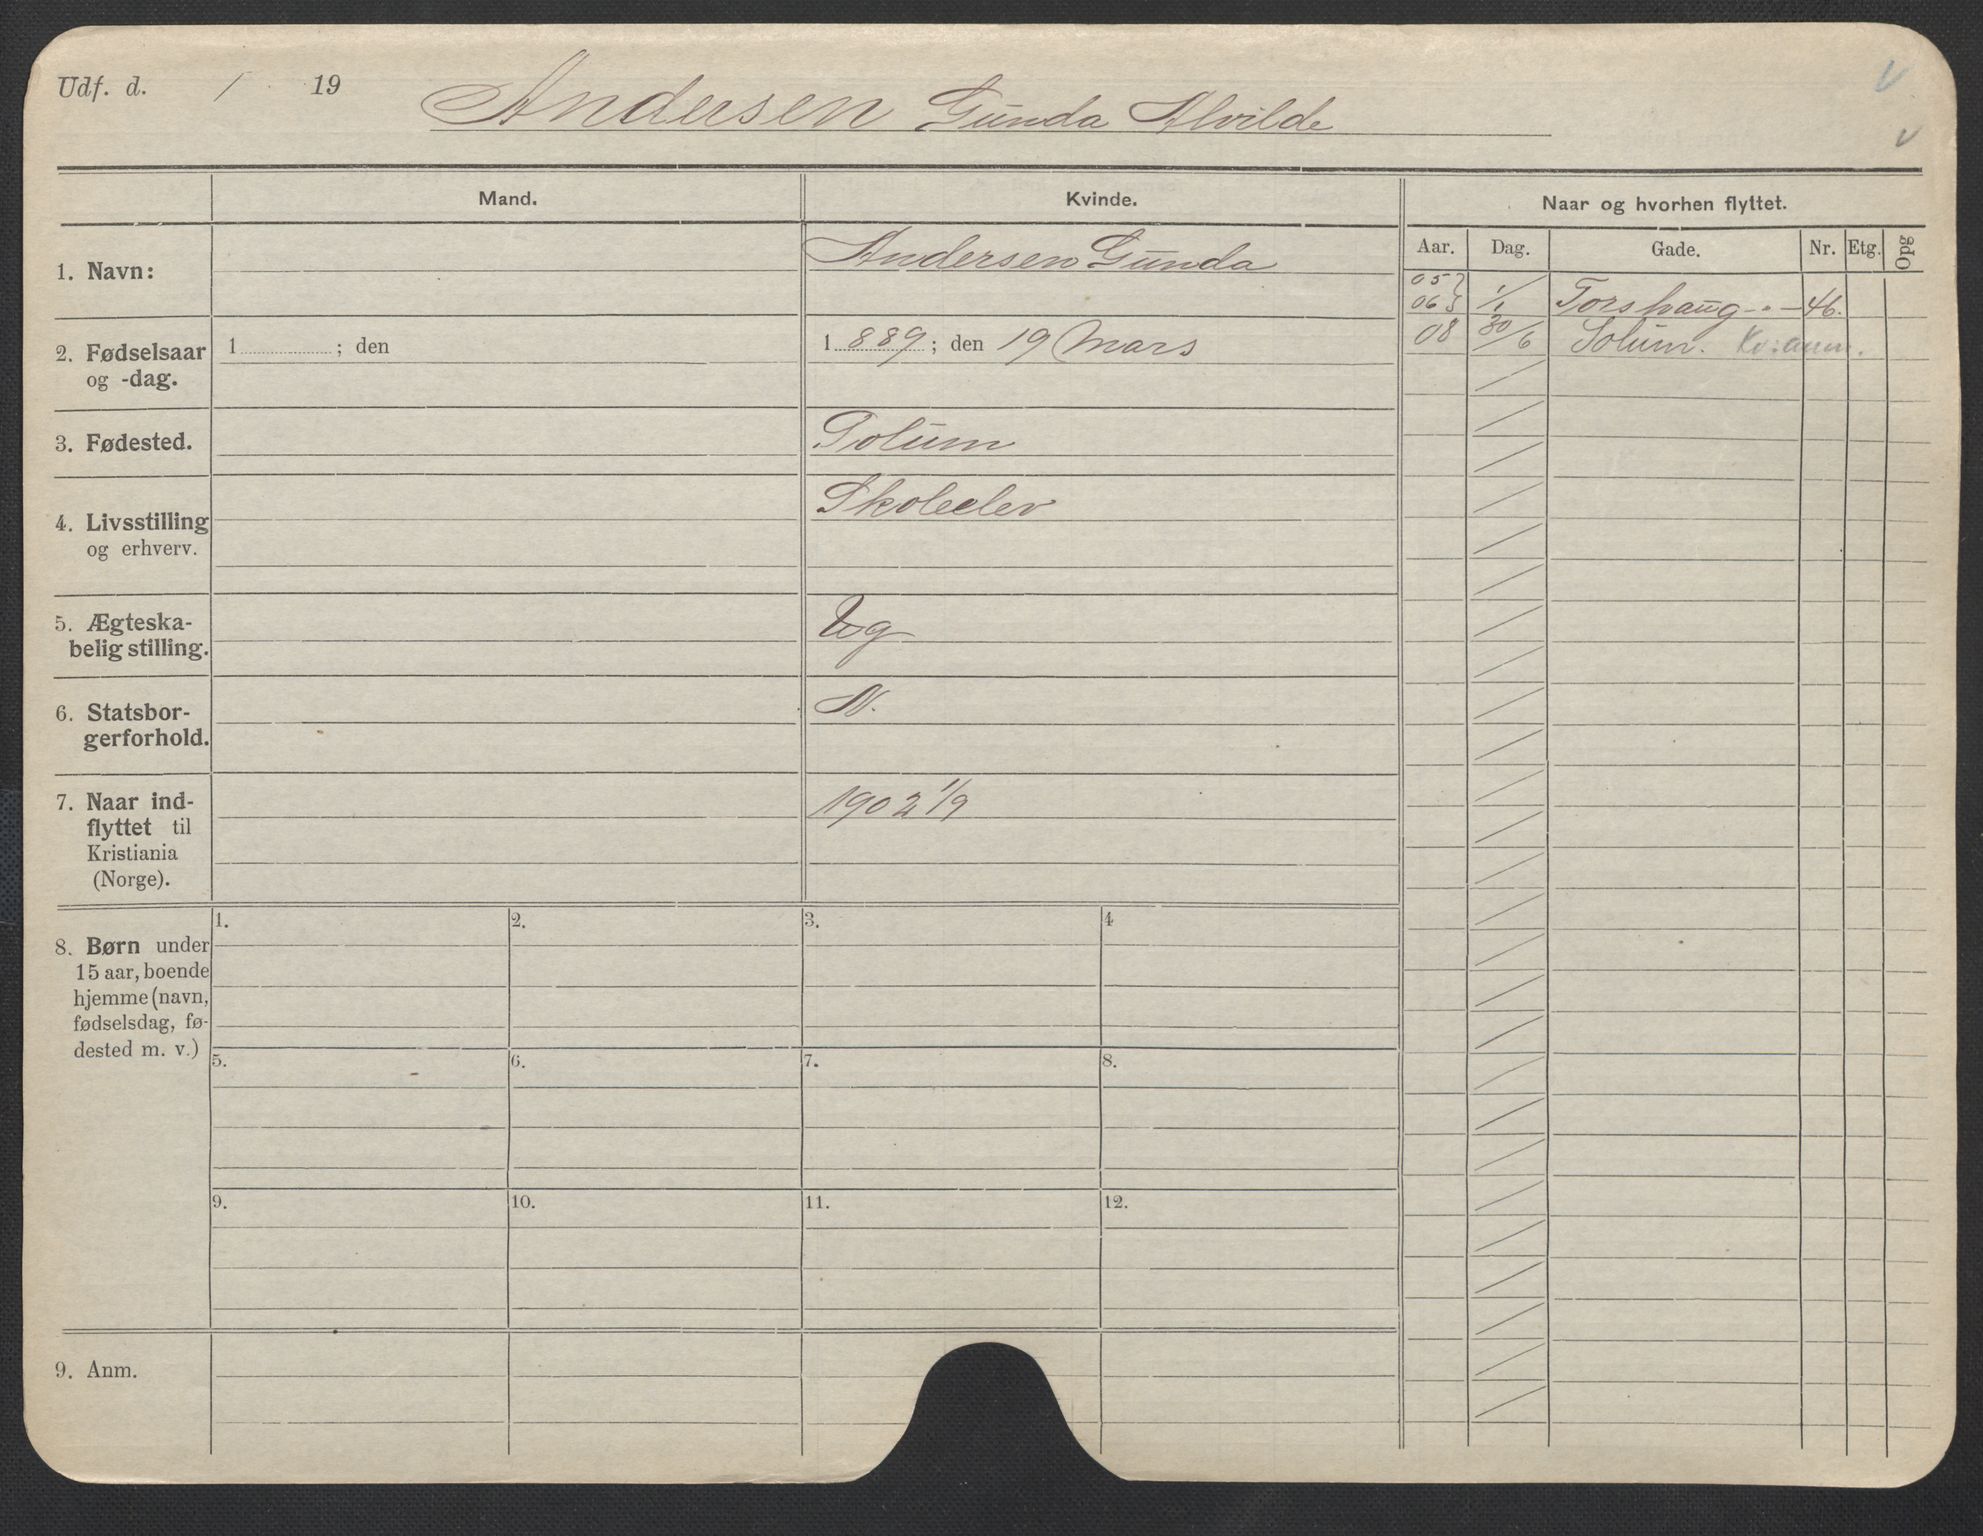 Udf. d. / 19 Andersen Gunda Alvilde
V
v
Mand. Kvinde. Naar og hvorhen flyttet.
Aar. Dag. Gade. Nr. Etg. Opg
1. Navn: Andersen Gunda
05 }
06 } 1/1 Torshaug - 46.
08 30/6 Solum. Kv: anm.
2. Fødselsaar
og -dag.
1 ; den
1 889 ; den 19 Mars
3. Fødested. Solum
4. Livsstilling
og erhverv.
Skoleelev
5. Ægteska-
belig stilling.
Ug
6. Statsbor-
gerforhold.
N.
7. Naar ind-
flyttet til
Kristiania
(Norge).
1902 1/9
8. Børn under
15 aar, boende
hjemme (navn,
fødselsdag, fø-
dested m. v.)
1. 2. 3. 4
5. 6. 7. 8.
9. 10. 11. 12.
9. Anm.